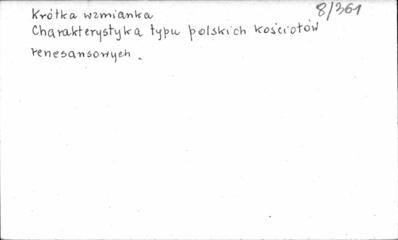 8/361
Krótka wzmianka
Charakterystyka typu polskich kościołów
renesansowych .